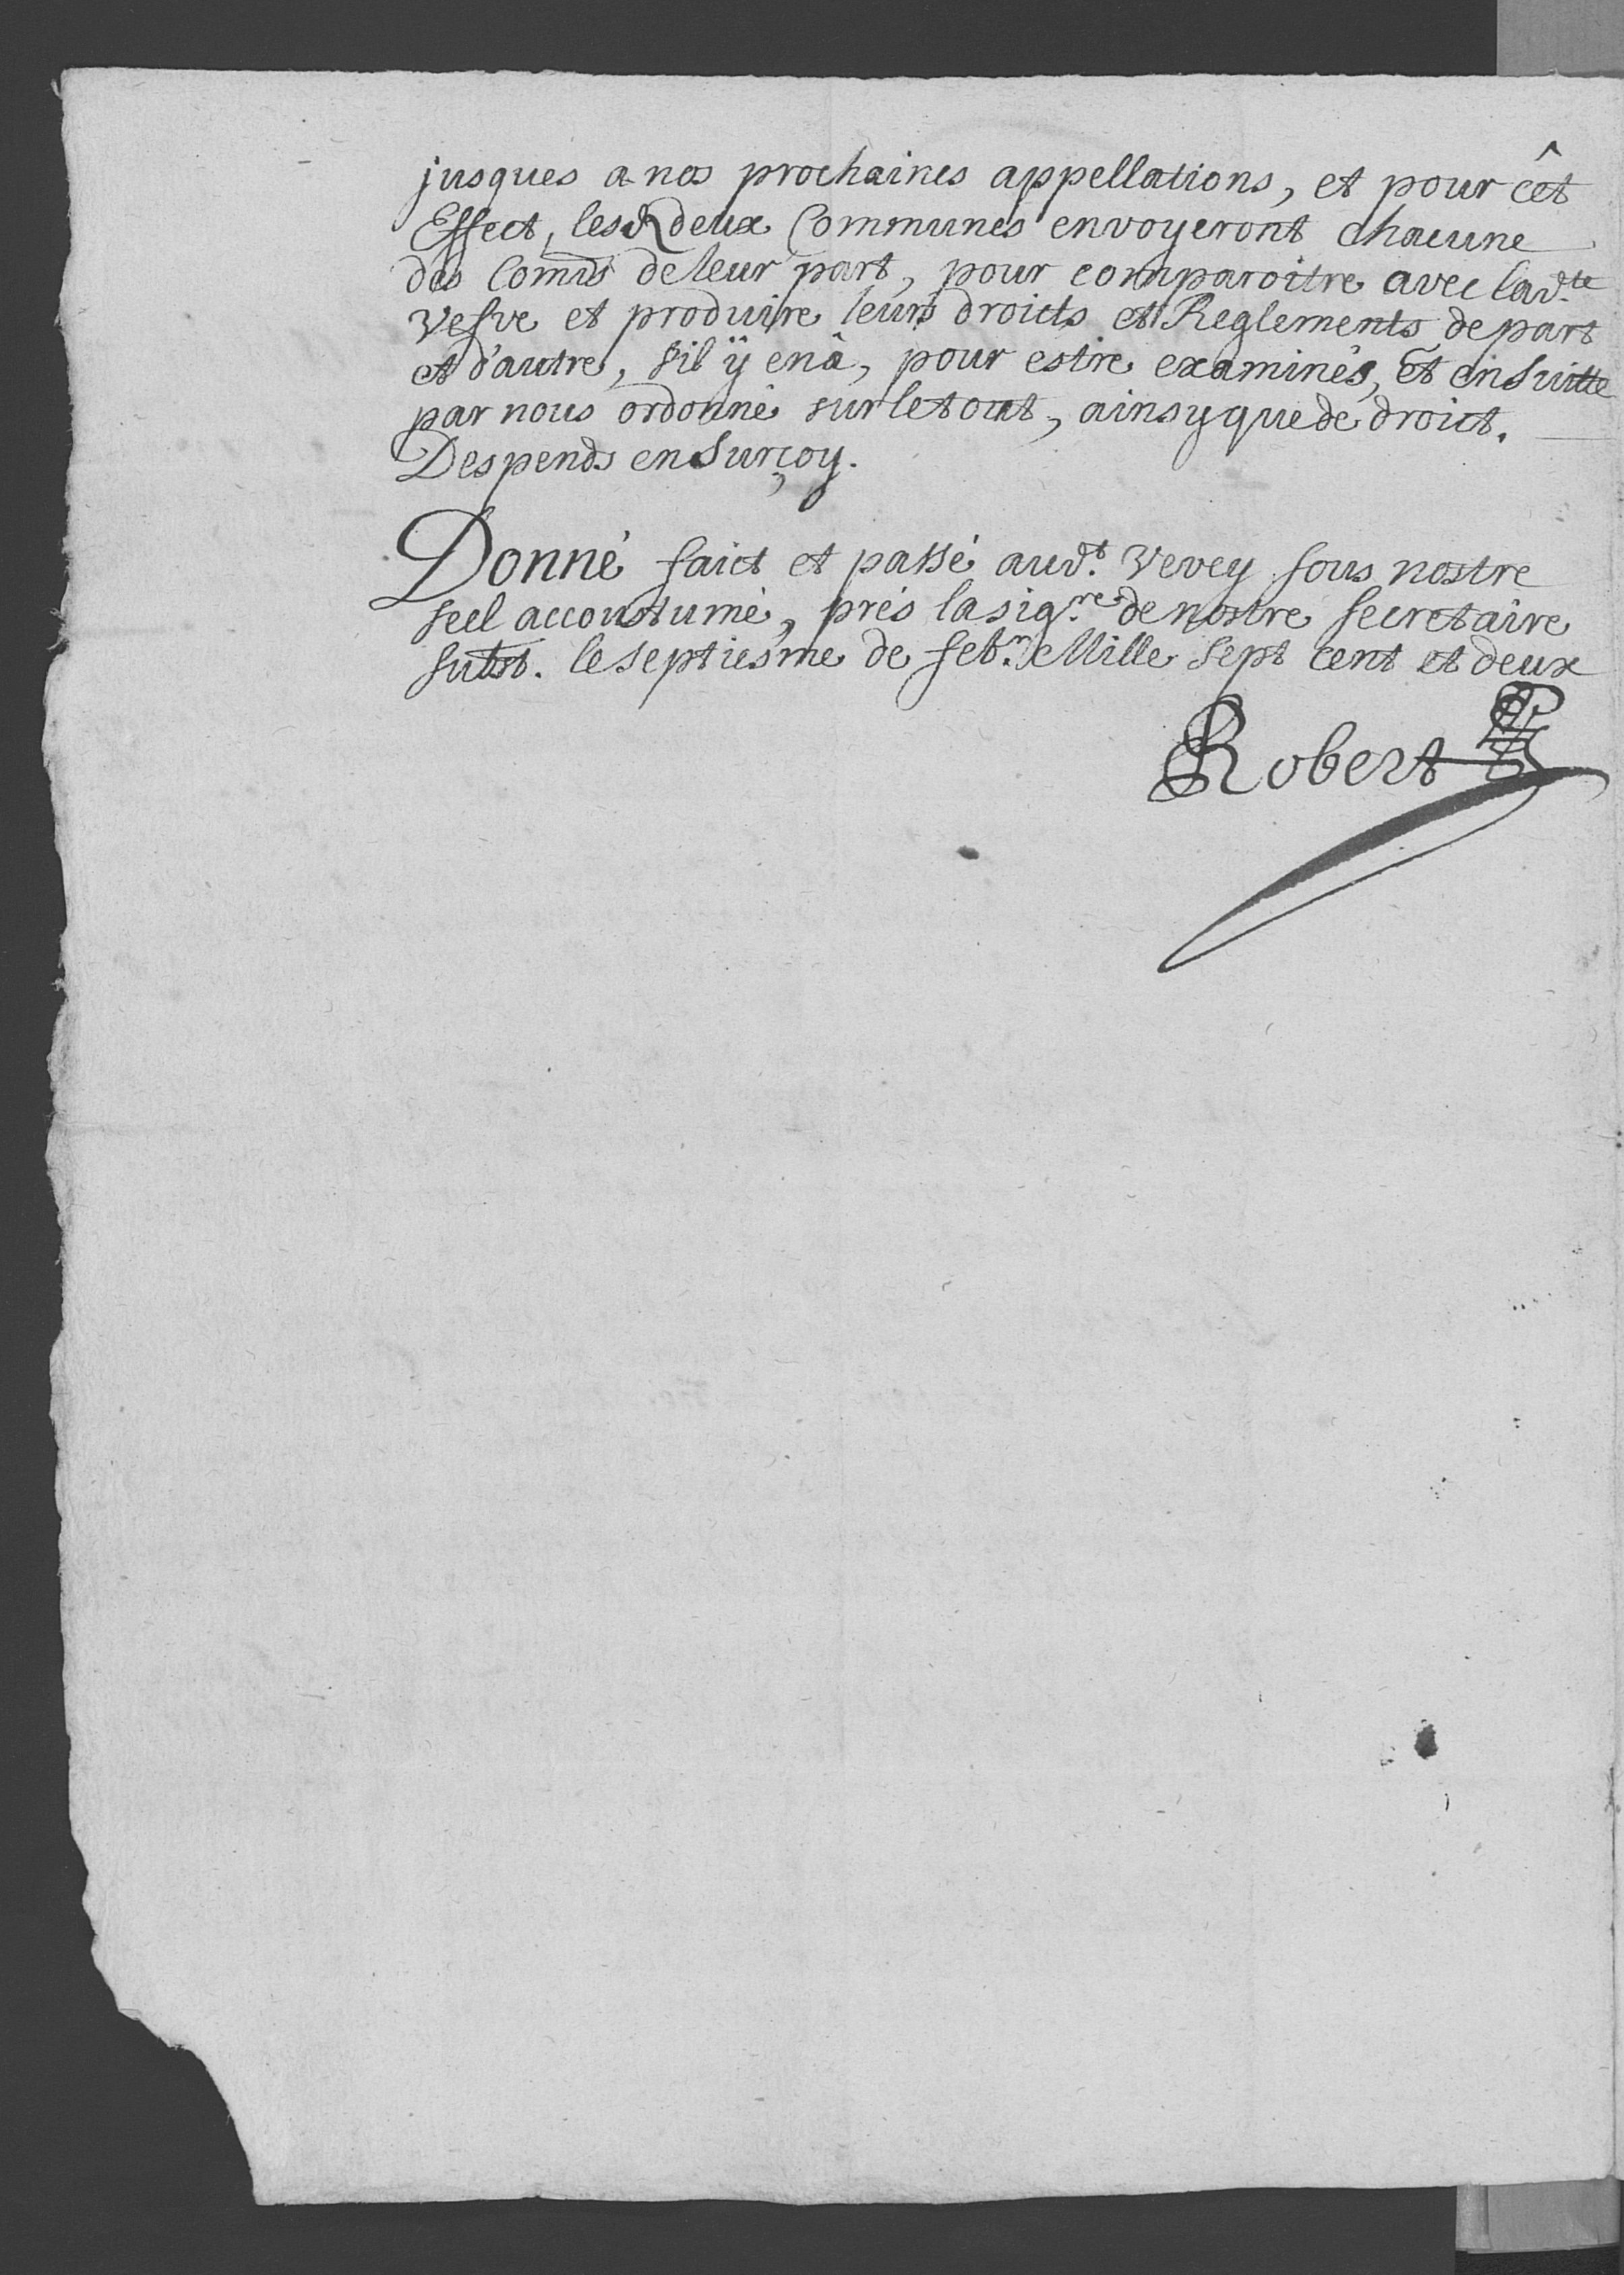 jusques a nos prochaines appellations, et pour cêt
Effect, les deux Communes envoyeront chacune
des Comis de leur part, pour comparoitre avec lad.te
Vefve et produire leurs droicts et Reglements de part
et d'autre, s'il ÿ en â, pour estre examinés, et en suitte
par nous ordonné sur le tout, ainsy que de droict.
Despends en surçoy.
Donné faict et passé aud.t Vevey sous nostre
seel accoustumé, prés la sig.re de nostre secretaire
subst. le septiesme de feb.r Mille sept cent et deux
Robert